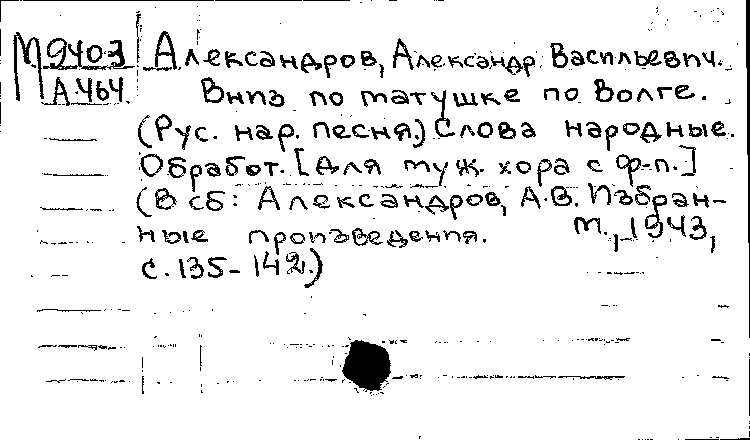 М 9403 Александров, Александр Васильевич.
А.464. Вниз по матушке по Волге.
(Рус. нар. песня.) Слова народные.
Обработ. [для муж. хора с ф-п.]
(В сб: Александров, А.В. Избран-
ные произведения. М., 1943,
с. 135-142.)